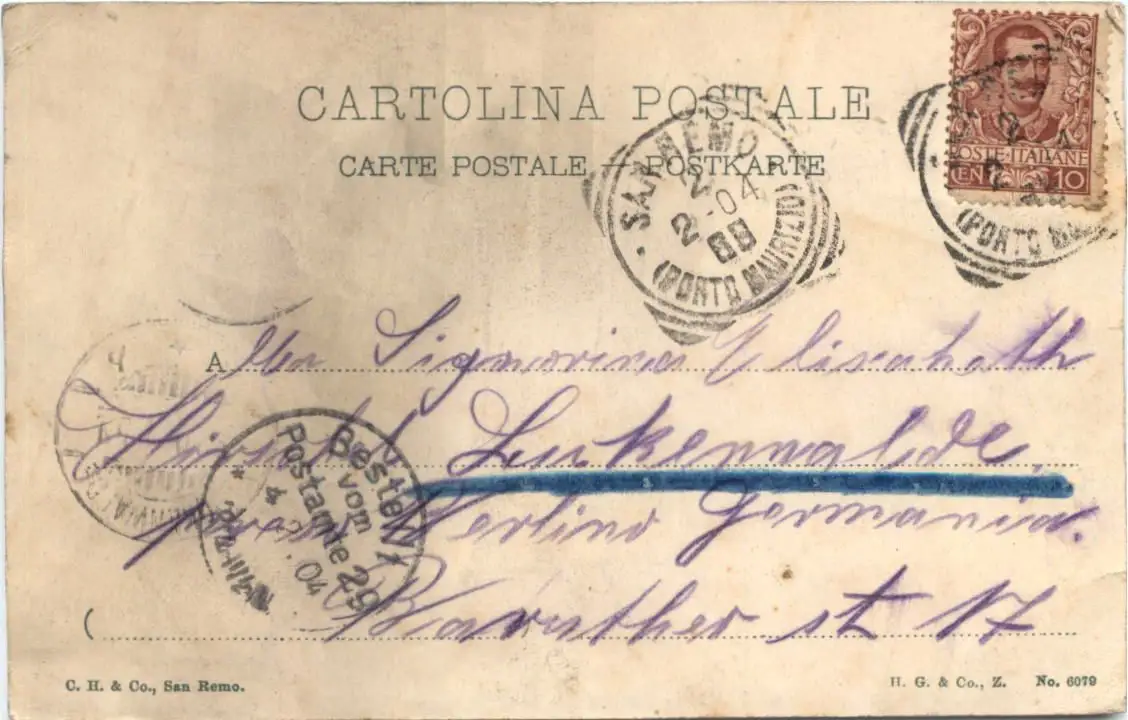 CARTOLINA POSTALE
CARTE POSTALE — POSTKARTE
POSTE·ITALIANE
CEN 10
SAN REMO
2
2-04
(PORTO MAURIZIO)
(PORTO
A lla Signorina Elisabeth
Hirsch Lukenwalde
presso Berlino Germania.
Baruther st 17
Bestellt
vom
Postamte 29
4
04
(
C. H. & Co., San Remo.
H. G. & Co., Z. No. 6079